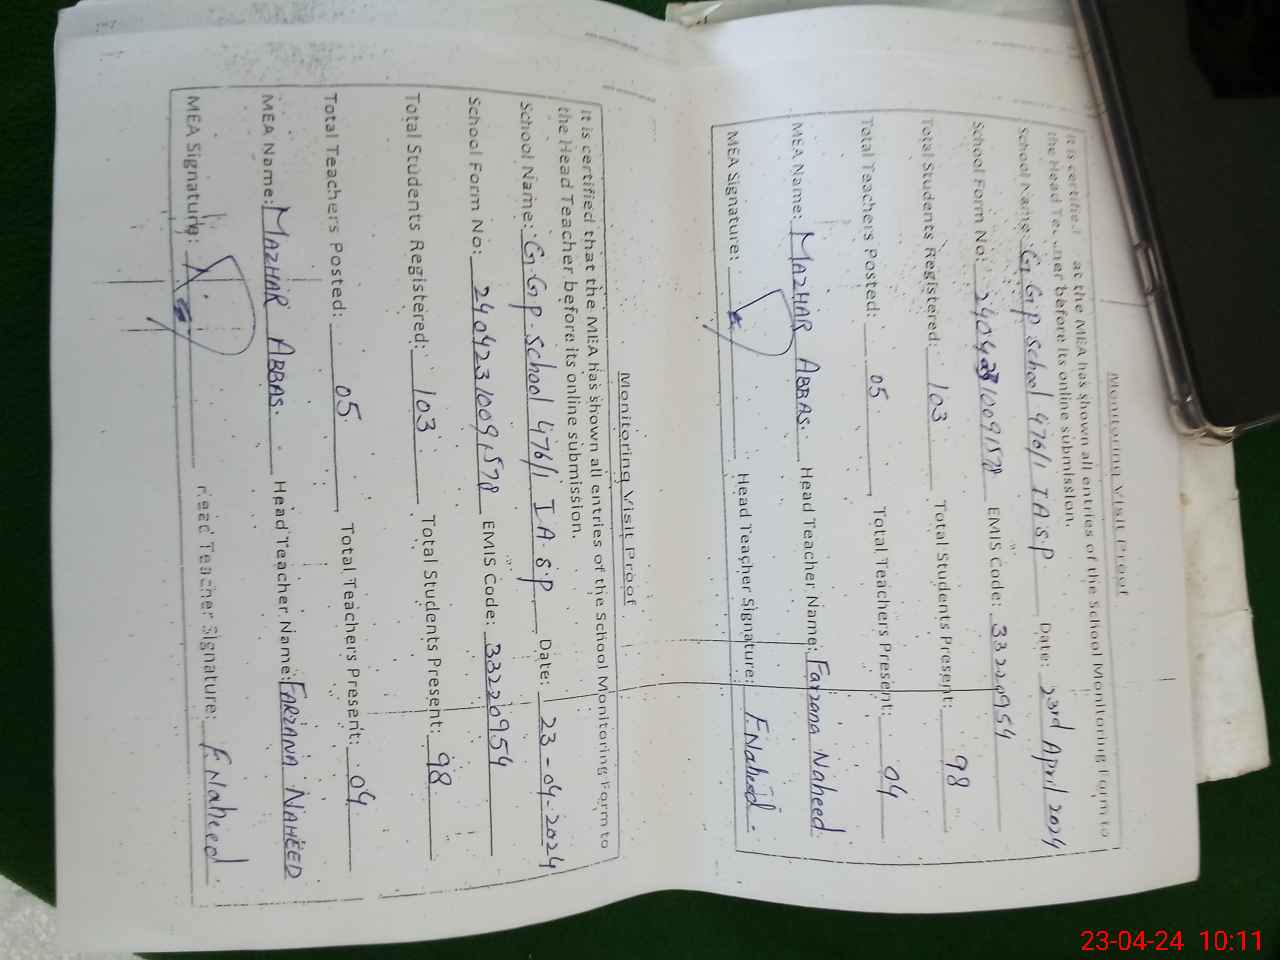 Monitoring Visit Proof
It is certified at the MEA has shown all entries of the School Monitoring Form to
the Head Teacher before its online submission.
School Name: G.Gp School 476/1 IA SP Date: 23rd April 2024
School Form No: 240423 10091578 EMIS Code: 33220954
Total Students Registered: 103 Total Students Present: 98
Total Teachers Posted: 05 Total Teachers Present: 04
MEA Name: MAZHAR ABBAS. Head Teacher Name: Farzana Naheed
MEA Signature: Head Teacher Signature: F.Naheed.
Monitoring Visit Proof
It is certified that the MEA has shown all entries of the School Monitoring Form to
the Head Teacher before its online submission.
School Name: G.Gp.School 476/1 IA.SP Date: 23-04-2024
School Form No: 240423 10091578 EMIS Code: 33220954
Total Students Registered: 103 Total Students Present: 98
Total Teachers Posted: 05 Total Teachers Present: 04
MEA Name: MAZHAR ABBAS. Head Teacher Name: FARZANA NAHEED
MEA Signature: Head Teacher Signature: F.Naheed
23-04-24 10:11